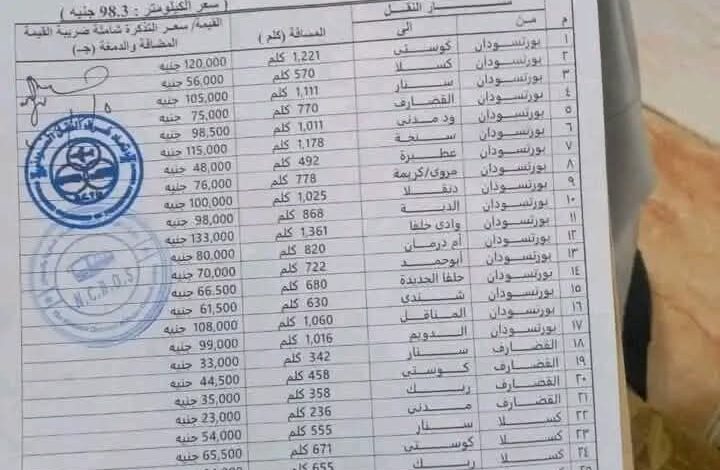 ( سعر الكيلومتر : 98.3 جنيه )
ـار النقل
القيمة/ سعر التذكرة شاملة ضريبة القيمة المضافة والدمغة (جـ)
م من الى المسافة (كلم )
١ بورتسودان كوستى 1,221 كلم 120,000 جنيه
٢ بورتسودان كسلا 570 كلم 56,000 جنيه
٣ بورتسودان سنار 1,111 كلم 105,000 جنيه
٤ بورتسودان القضارف 770 كلم 75,000 جنيه
٥ بورتسودان ود مدنى 1,011 كلم 98,500 جنيه
٦ بورتسودان سنجة 1,178 كلم 115,000 جنيه
٧ بورتسودان عطبرة 492 كلم 48,000 جنيه
٨ بورتسودان مروى/كريمة 778 كلم 76,000 جنيه
٩ بورتسودان دنقلا 1,025 كلم 100,000 جنيه
١٠ بورتسودان الدبة 868 كلم 98,000 جنيه
١١ بورتسودان وادى حلفا 1,361 كلم 133,000 جنيه
١٢ بورتسودان أم درمان 820 كلم 80,000 جنيه
١٣ بورتسودان ابوحمد 722 كلم 70,000 جنيه
١٤ بورتسودان حلفا الجديدة 680 كلم 66.500 جنيه
١٥ بورتسودان شندى 630 كلم 61,500 جنيه
١٦ بورتسودان المناقل 1,060 كلم 108,000 جنيه
١٧ بورتسودان الدويم 1,016 كلم 99,000 جنيه
١٨ القضارف سنار 342 كلم 33,000 جنيه
١٩ القضارف كوستى 458 كلم 44,500 جنيه
٢٠ القضارف ربك 358 كلم 35,000 جنيه
٢١ القضارف مدنى 236 كلم 23,000 جنيه
٢٢ كسلا سنار 555 كلم 54,000 جنيه
٢٣ كسلا كوستى 671 كلم 65,500 جنيه
٢٤ كسلا ربك 655 كلم
N.C.B.O.S